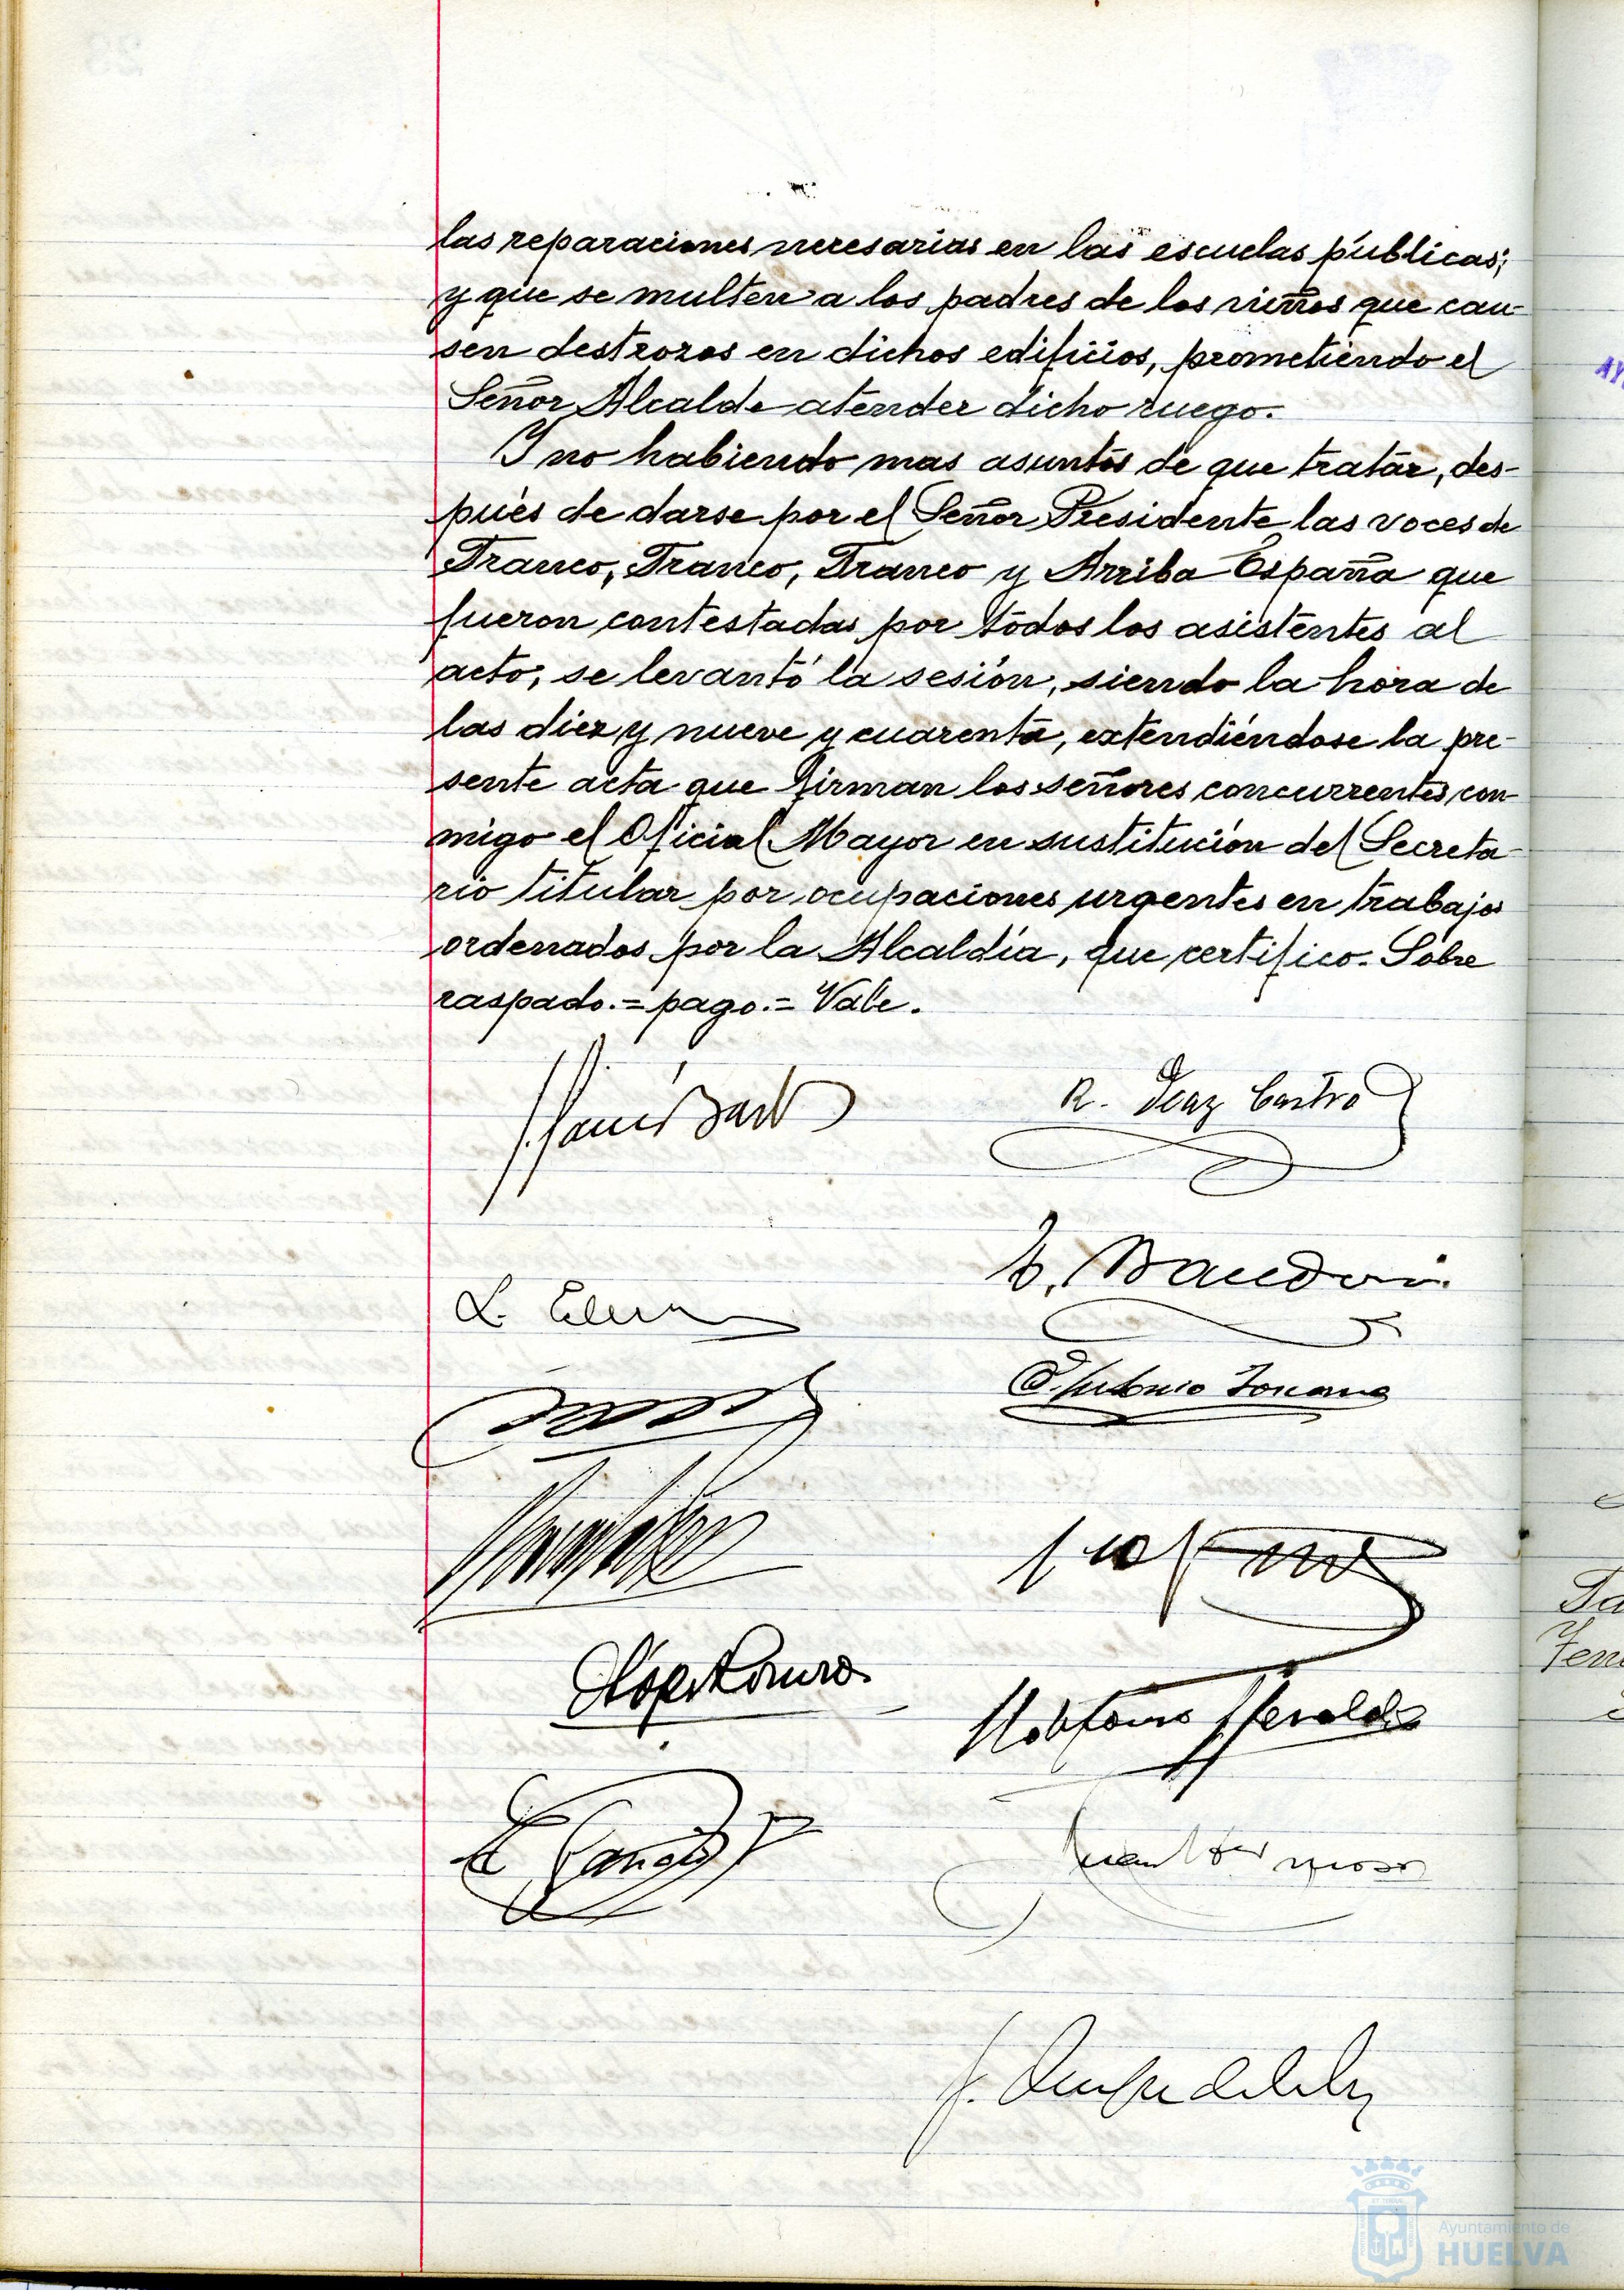 las reparaciones necesarias en las escuelas públicas;
y que se multen a los padres de los niños que cau-
sen destrozos en dichos edificios, prometiendo el
Señor Alcalde atender dicho ruego.
Y no habiendo mas asuntos de que tratar, des-
pués de darse por el Señor Presidente las voces de
Franco, Franco, Franco y Arriba España que
fueron contestadas por todos los asistentes al
acto, se levantó la sesión, siendo la hora de
las diez y nueve y cuarenta, extendiéndose la pre-
sente acta que firman los señores concurrentes con-
migo el Oficial Mayor en sustitución del Secreta-
rio titular por ocupaciones urgentes en trabajos
ordenados por la Alcaldía, que certifico. Sobre
raspado.=pago.=Vale.
R. Diaz Castro
Ayuntamiento de
HUELVA